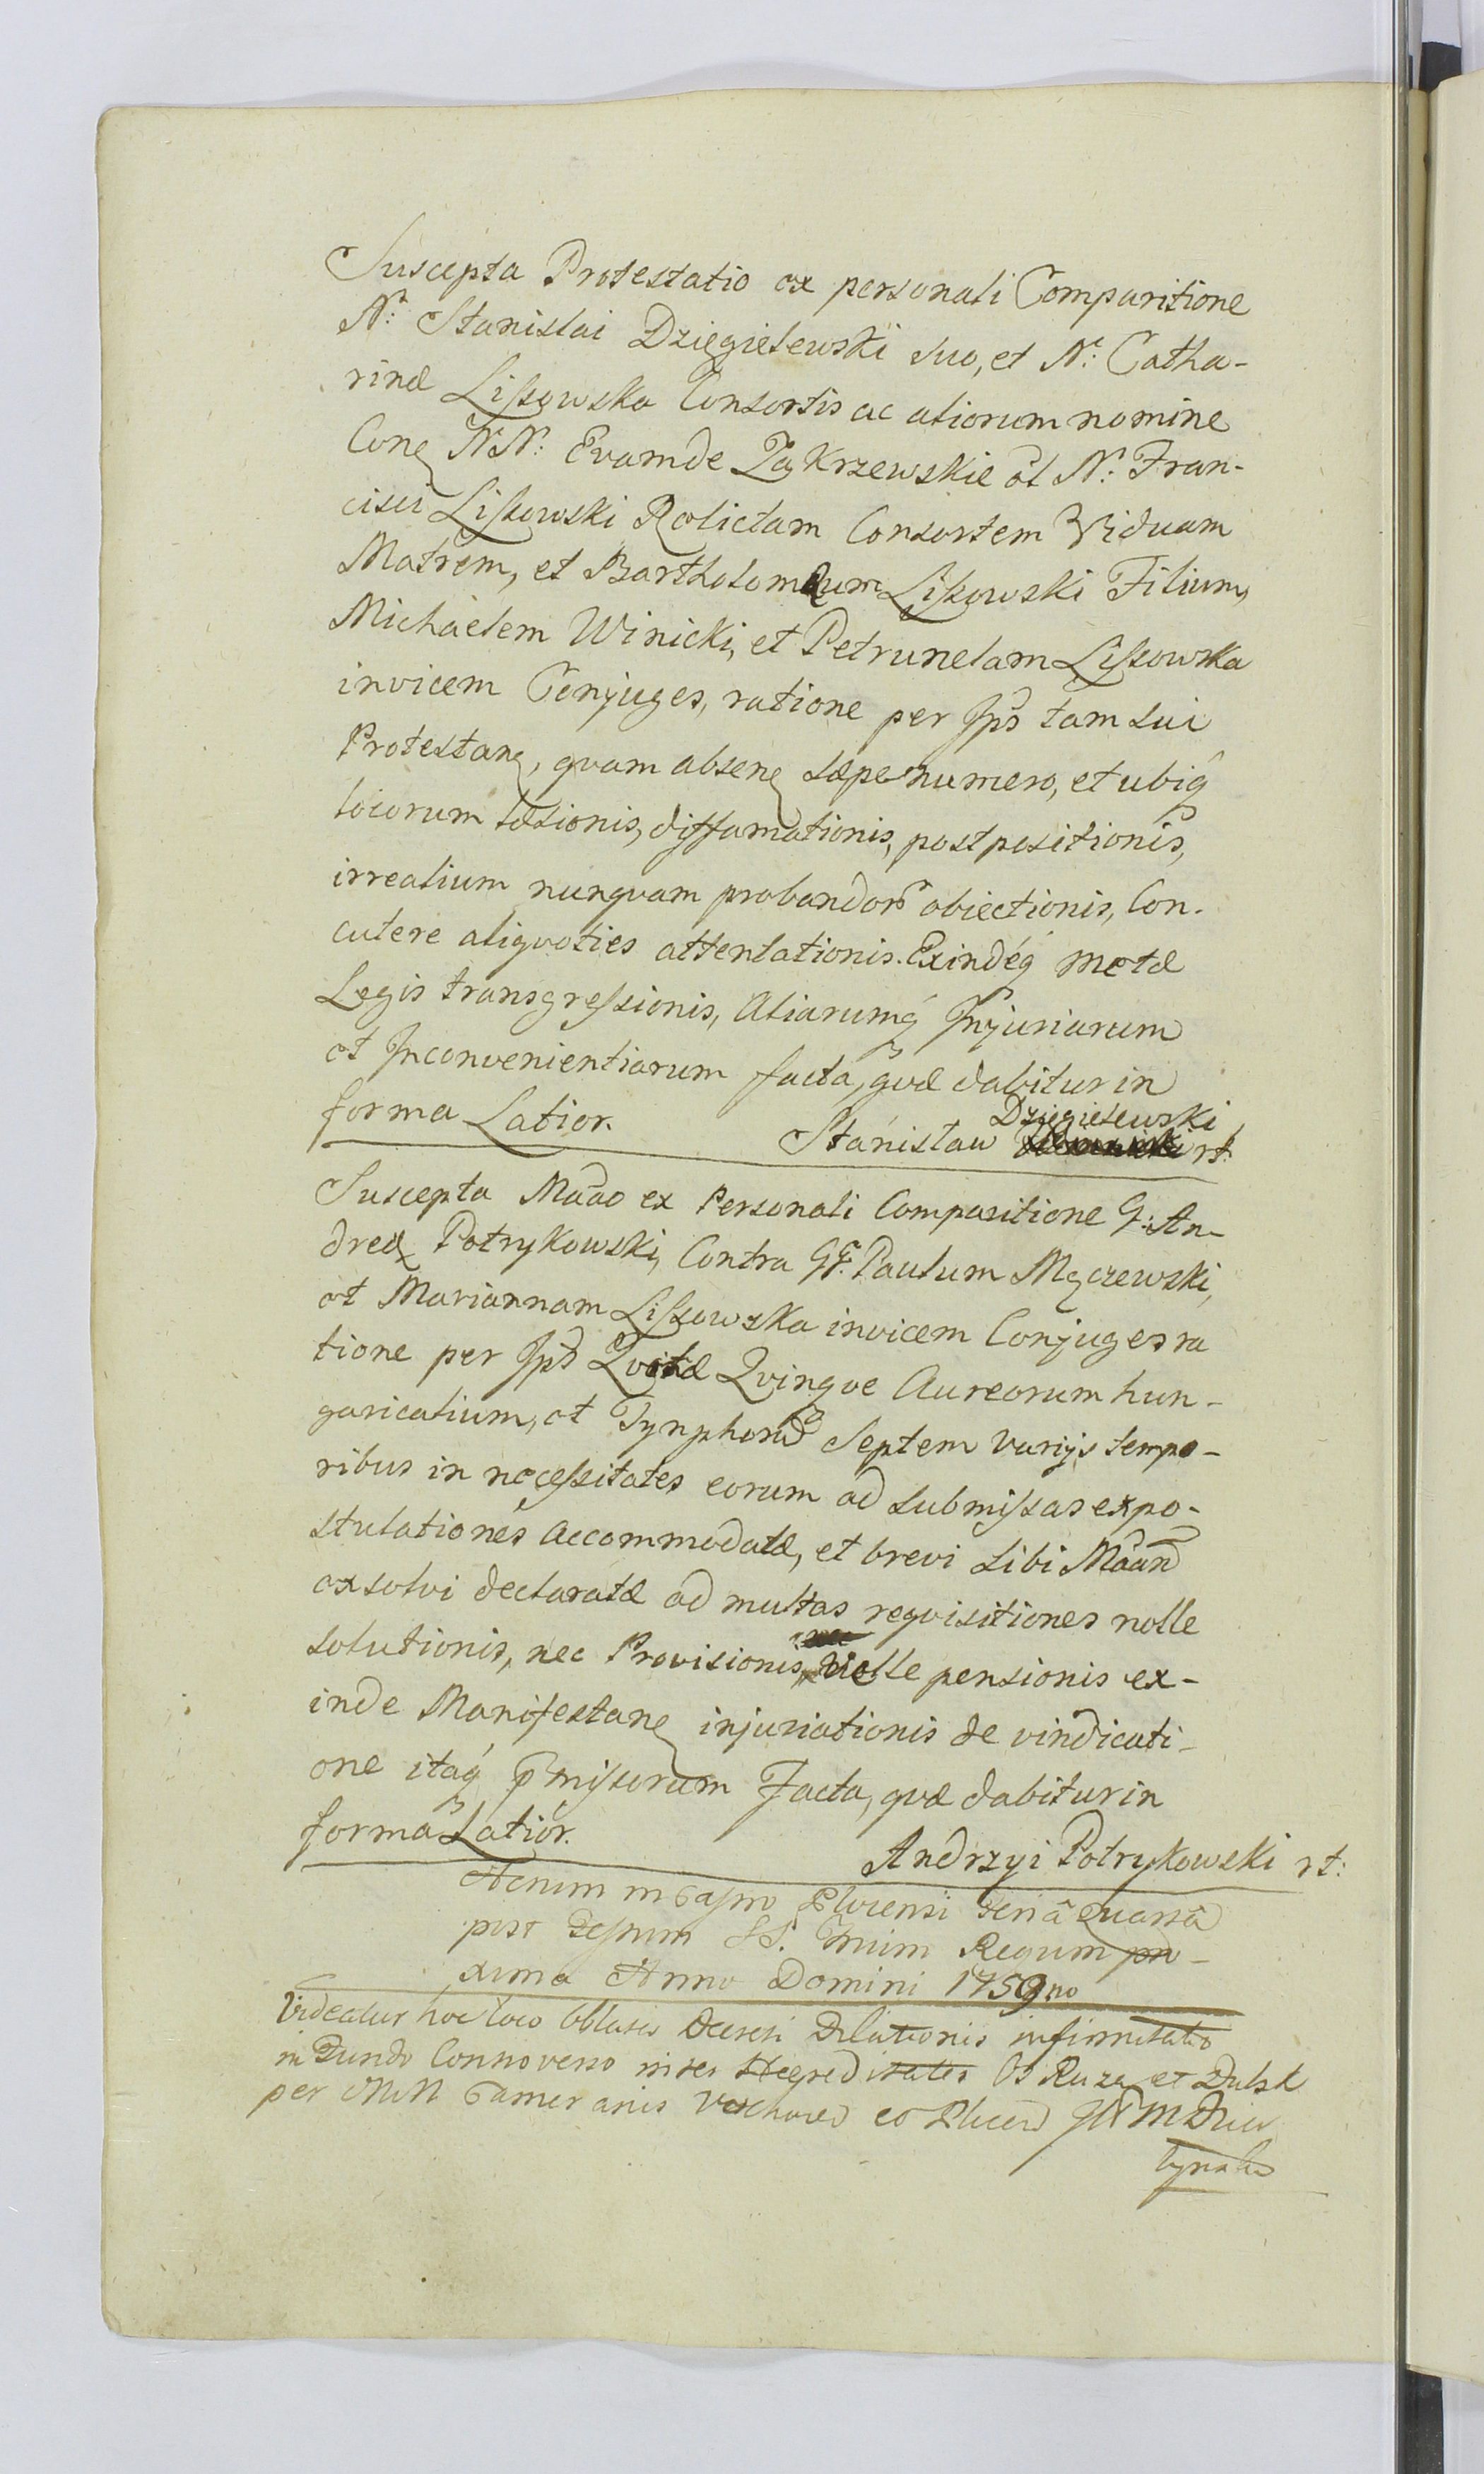 Suscepta Protestatio ex personali Comparitione
N: Stanislai Dziegielewski suo, et N: Catha-
rinæ Lissowska Consortis ac aliorum nomine
Conę NN: Evam de Zakrzewskie ol N: Fran-
cisci Lissowski Relictam Consortem Viduam
Matrem, et Bartholomæum Lissowski Filium,
Michaelem Winicki, et Petrunelam Lissowska
invicem Conjuges, ratione per Ips tam sui
Protestanę, quam absenę sæpe numero, et ubiq
locorum læsionis, diffamationis, postpositionis,
irrealium nunquam probandor obiectionis, Con-
cutere aliquoties attentationis. Exindeq metæ
Legis transgressionis, Aliarumq Injuriarum
et Inconvenientiarum facta, quæ dabitur in
forma Latior.
Dziegielewski
Stanislaw rt
Suscepta Mãao ex Personali Comparitione G: An-
dreæ Potrykowski, Contra GG: Paulum Męczewski,
et Mariannam Lissowska invicem Conjuges ra
tione per Ips Quotæ Quinque Aureorum hun-
garicalium, et Tynphorū Septem varijs tempo-
ribus in necessitates eorum ad submissas expo-
stulationes accommodatæ, et brevi sibi Mãan
exsolvi declaratæ ad multas requisitiones nolle
solutionis, nec Provisionis, velle pensionis ex-
inde Manifestanę injuriationis de vindicati-
one itaq pmissorum Facta, quæ dabitur in
forma Latior.
Andrzyi Potrykowski rt:
Actum in Castro Plocensi Feriâ Quartâ
post Festum SS. Trium Regum pro-
xima Anno Domini 1759no
Videatur hoc loco Oblata Decreti Dilationis infirmitatis
in Fundo Controverso inter Hæreditates
per